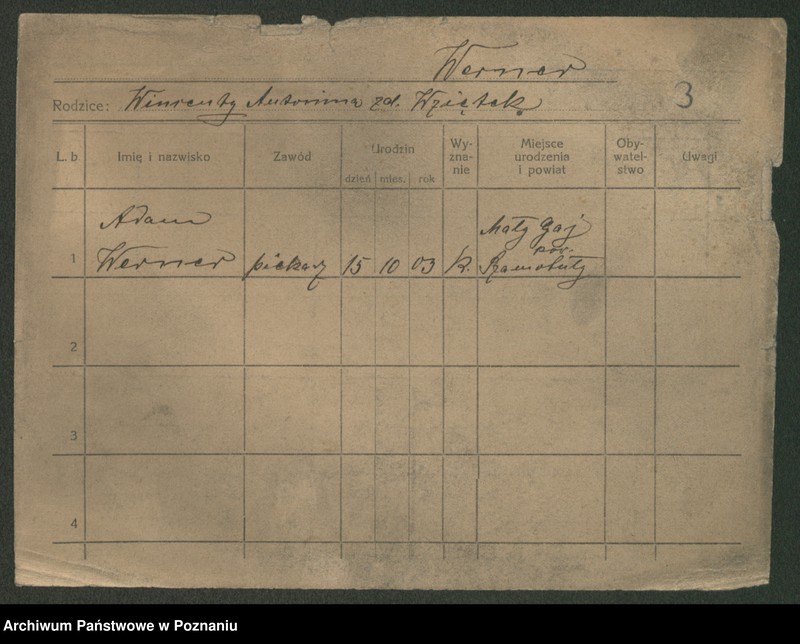 Werner
Rodzice: Wincenty Antonina zd. Wziętek 3
L. b. Imię i nazwisko Zawód Urodzin Wy-zna-nie Miejsce urodzenia i powiat Oby-watel-stwo Uwagi
dzień mies. rok
Adam Mały Gaj
pow.
1 Werner piekarz 15 10 03 k. Szamotuły
2
3
4
Archiwum Państwowe w Poznaniu